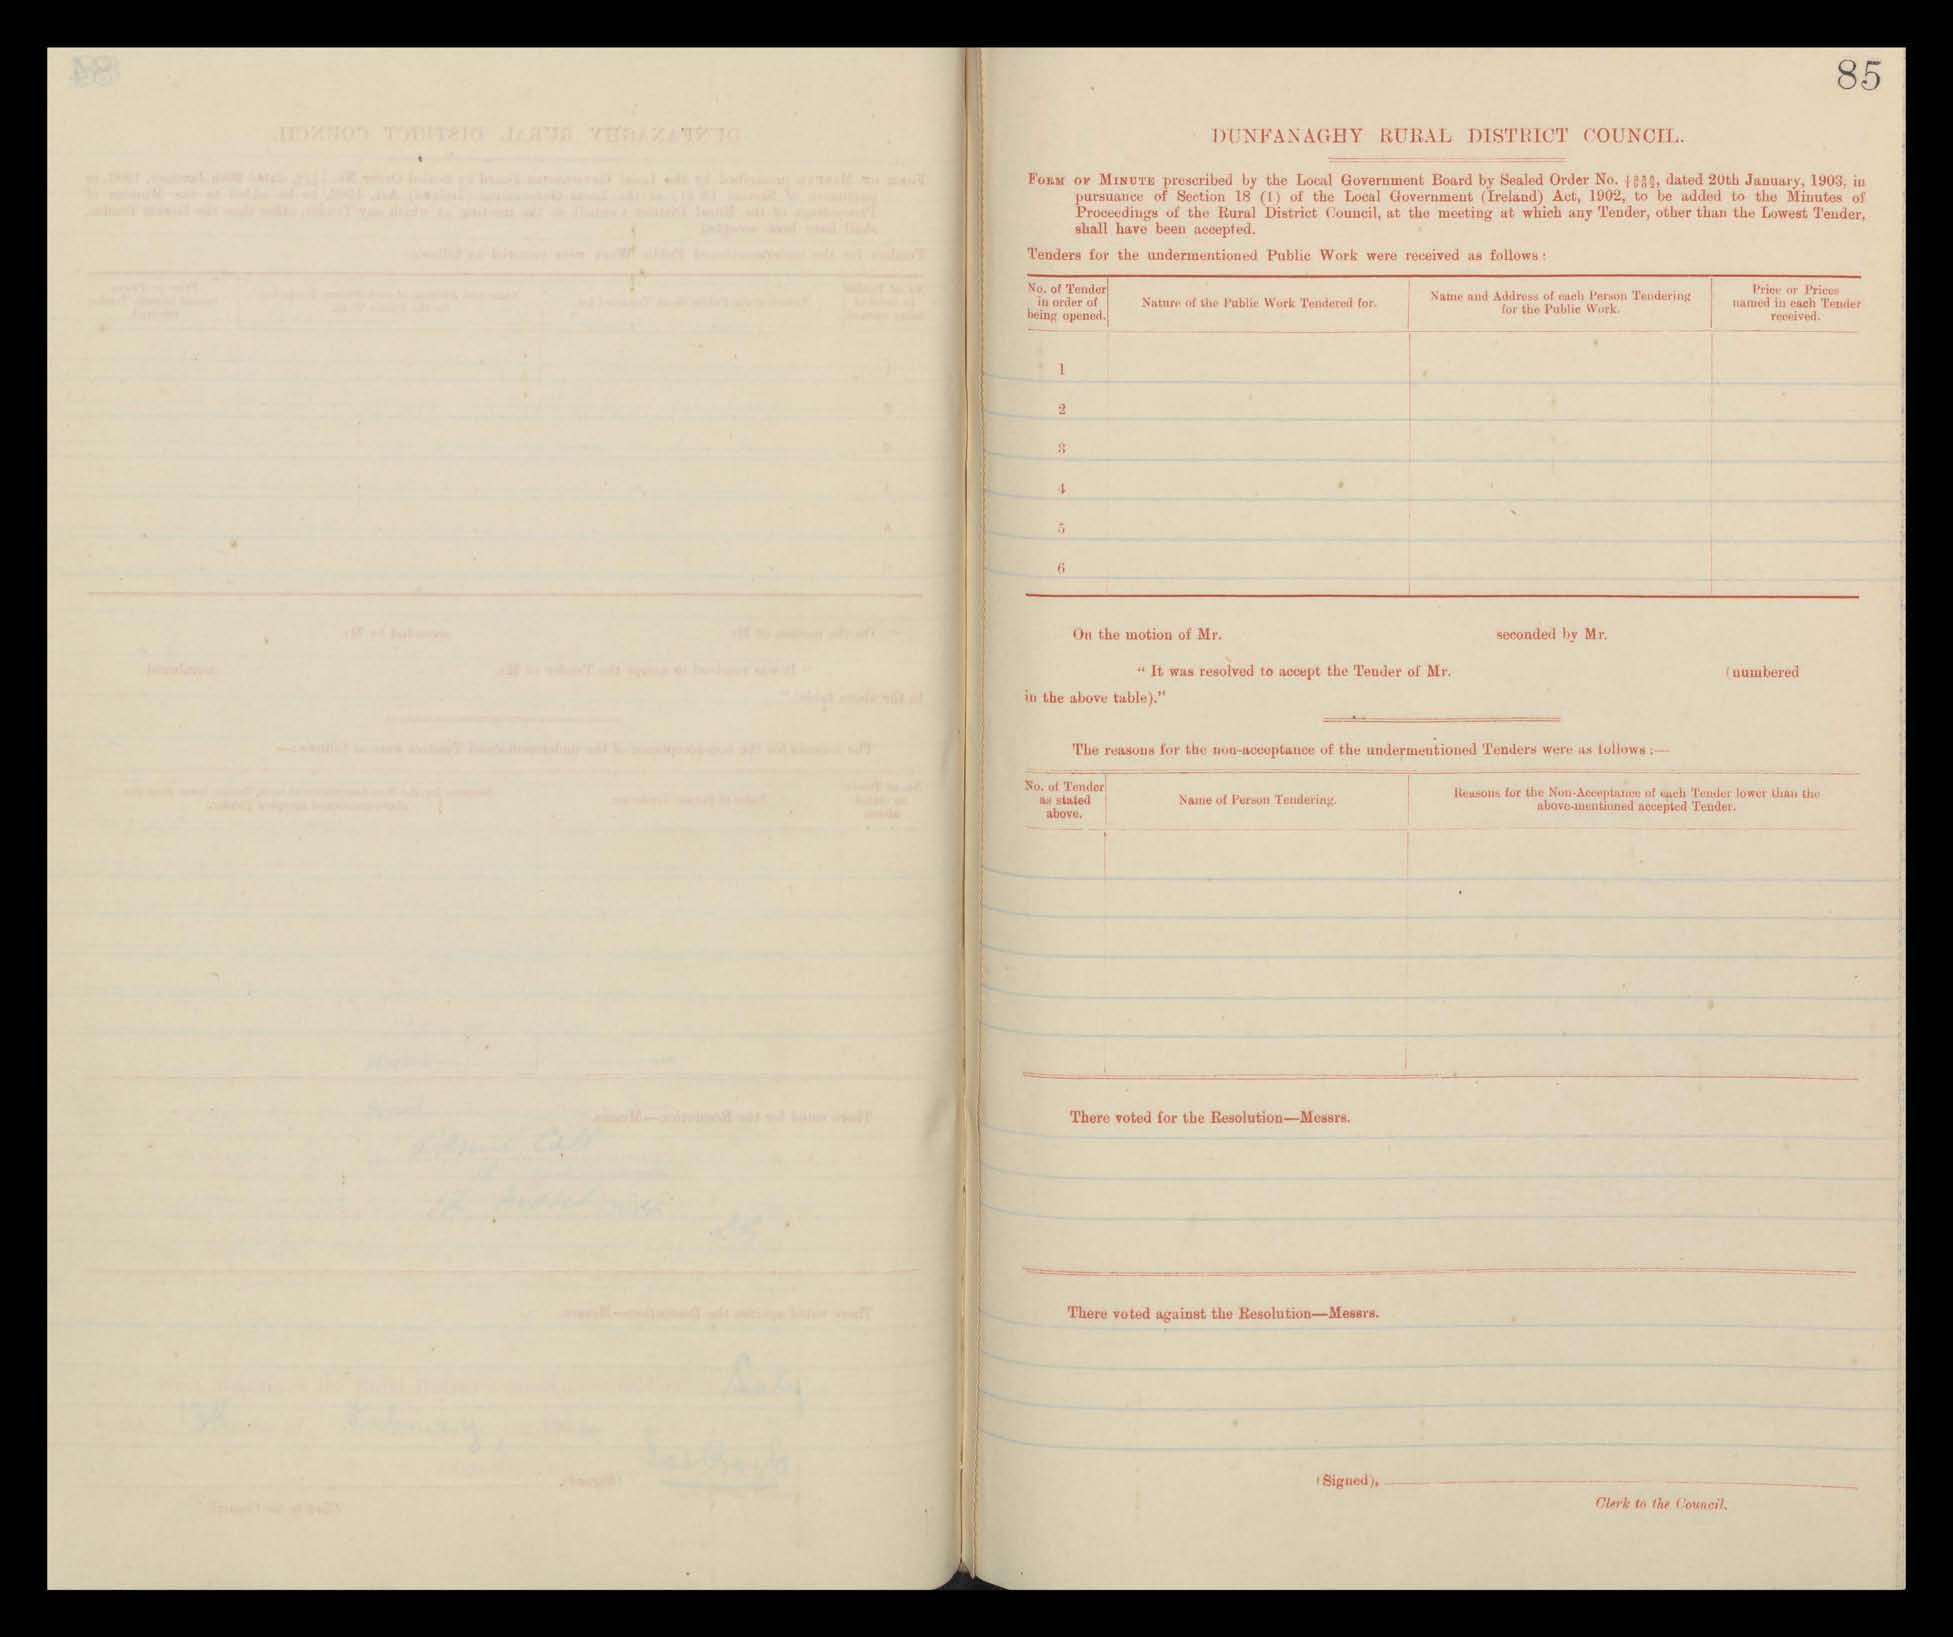 85
DUNFANAGHY RURAL DISTRICT COUNCIL.
FORM OF MINUTE prescribed by the Local Government Board by Sealed Order No. , dated 20th January, 1903, in
pursuance of Section 18 (1) of the Local Government (Ireland) Act, 1902, to be added to the Minutes of
Proceedings of the Rural District Council, at the meeting at which any Tender, other than the Lowest Tender,
shall have been accepted.
Tenders for the undermentioned Public Work were received as follows:
No. of Tender
in order of
being opened.
Nature of the Public Work Tendered for.
Name and Address of each Person Tendering
for the Public Work.
Price or Prices
named in each Tender
received.
1
2
3
4
5
6
On the motion of Mr. seconded by Mr.
“ It was resolved to accept the Tender of Mr. (numbered
in the above table).”
The reasons for the non-acceptance of the undermentioned Tenders were as follows :—
No. of Tender
as stated
above.
Name of Person Tendering.
Reasons for the Non-Acceptance of each Tender lower than the
above-mentioned accepted Tender.
There voted for the Resolution—Messrs.
There voted against the Resolution—Messrs.
(Signed),
Clerk to the Council.